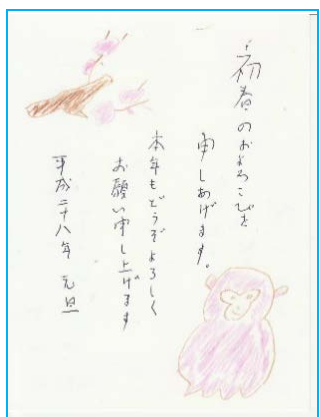 初春のおよろこびを
申しあげます。
本年もどうぞよろしく
お願い申し上げます
平成二十八年 元旦